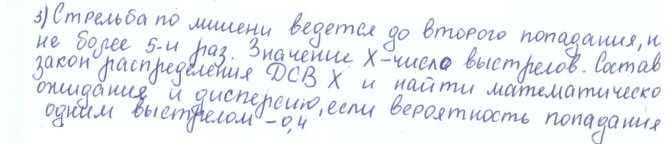 3) Стрельба по мишени ведется до второго попадания, н
не более 5-и раз. Значение X-число выстрелов. Состав
закон распределения ДСВ X и найти математическо
ожидания и дисперсию, если вероятность попадания
одним выстрелом -0,4